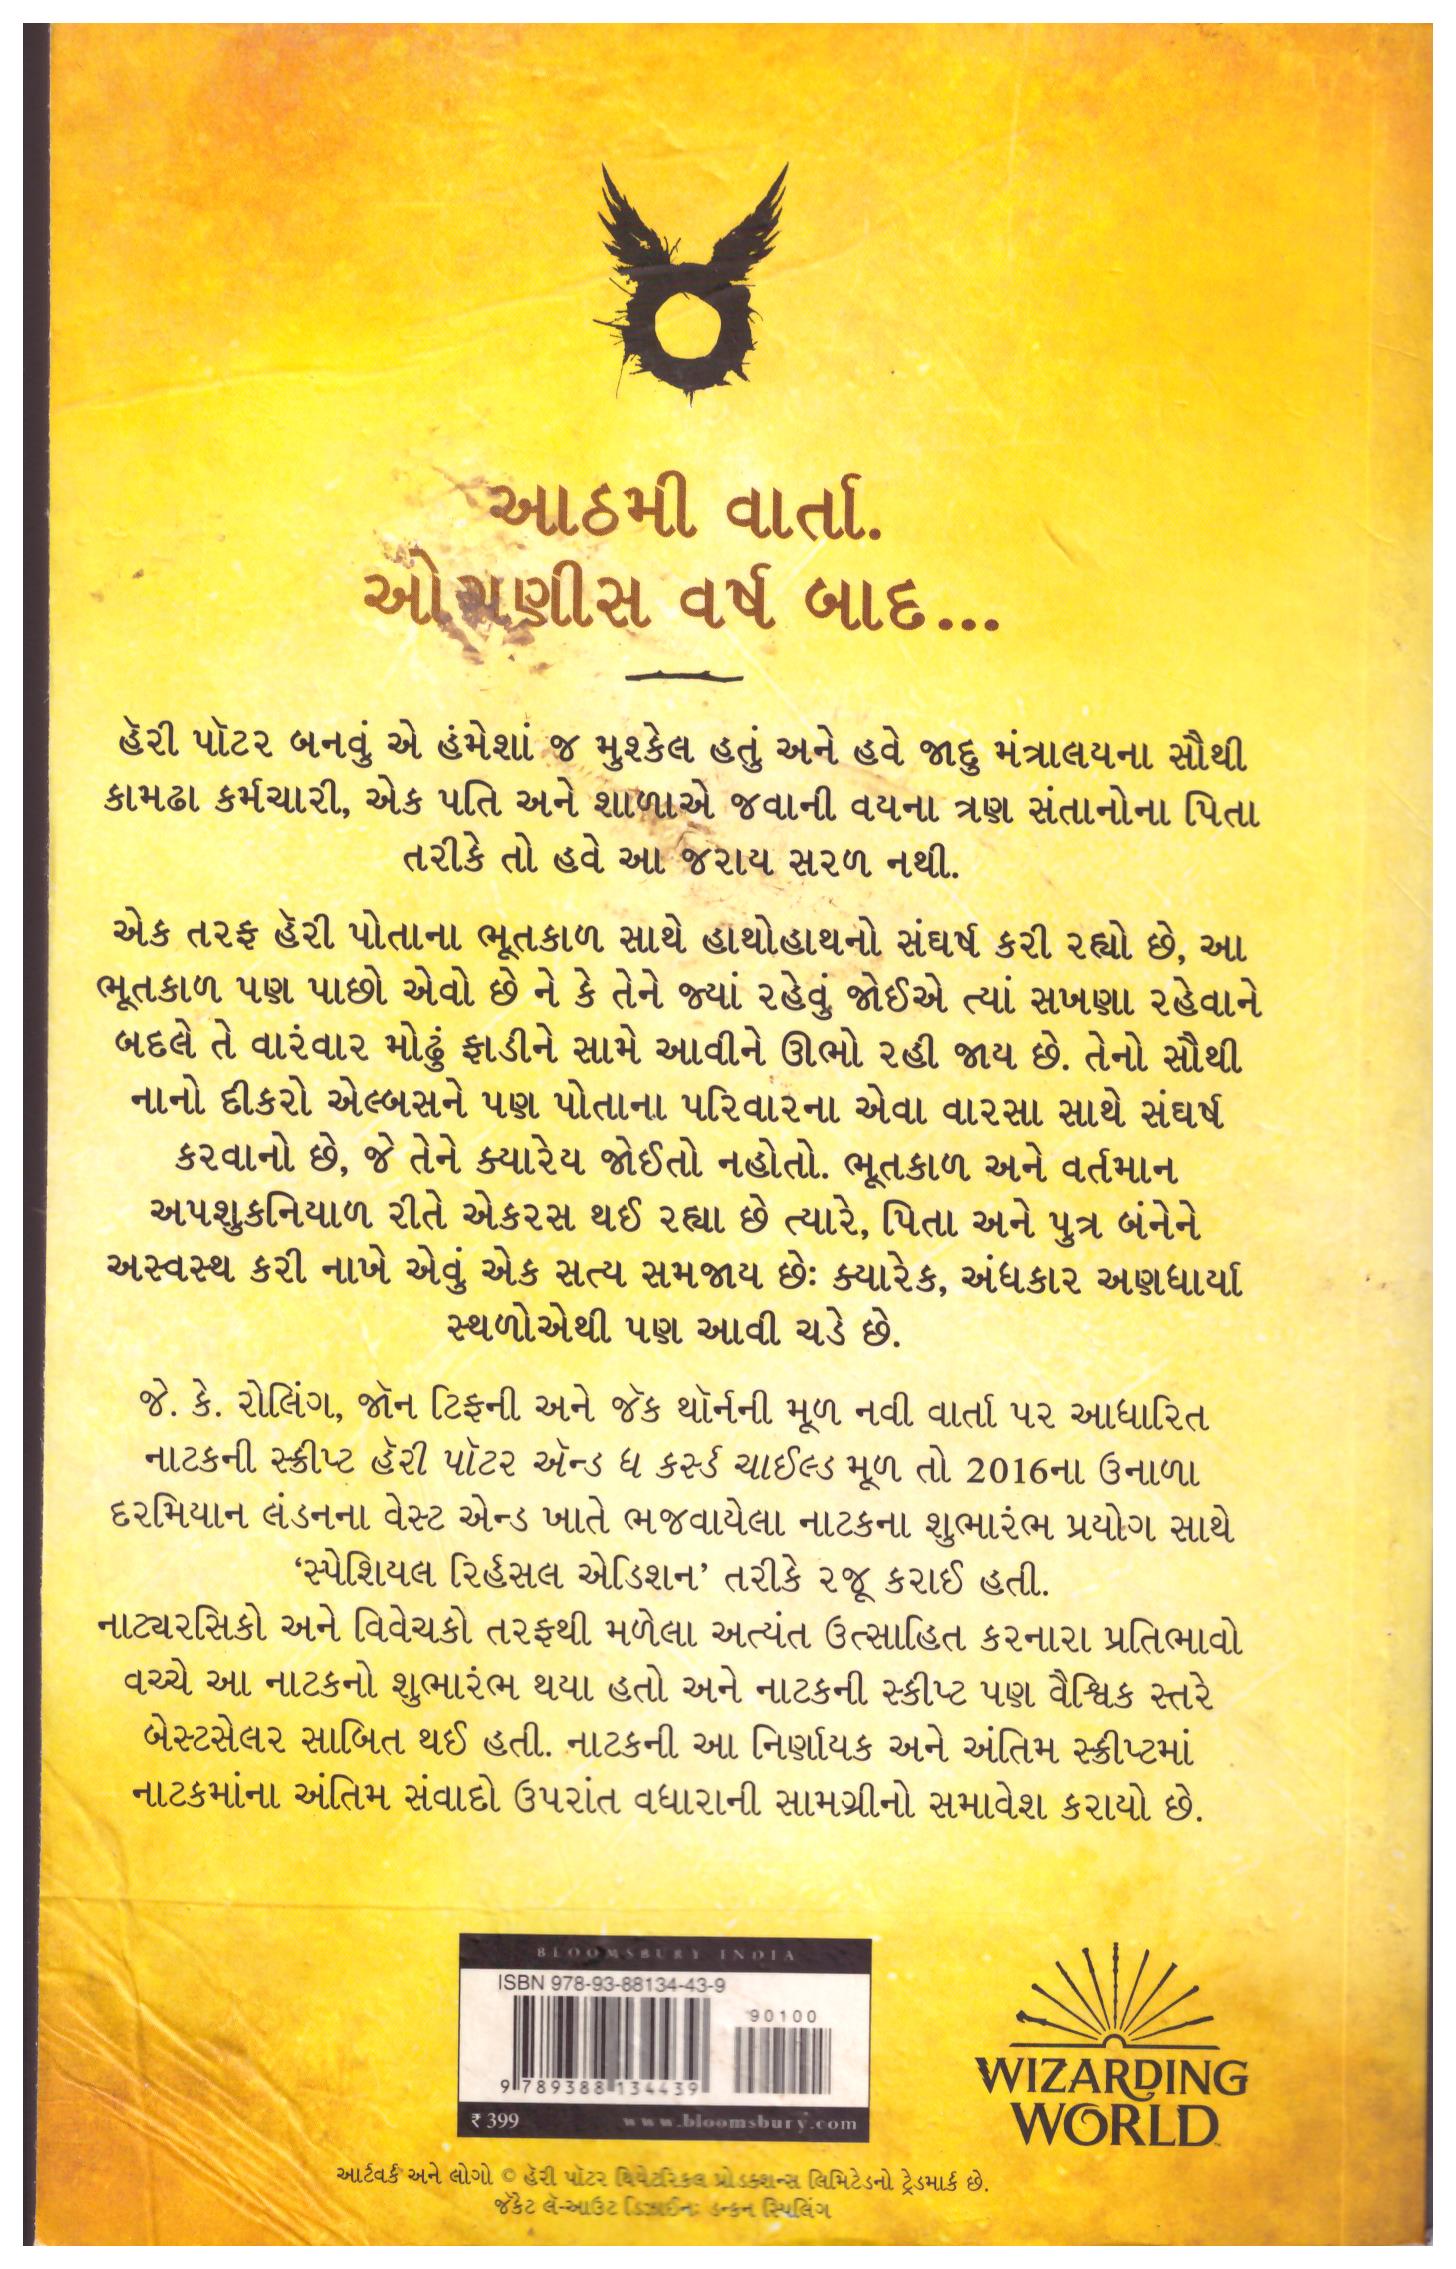 આઠમી વાર્તા.
ઓગણીસ વર્ષ બાદ...
હૅરી પૉટર બનવું એ હંમેશાં જ મુશ્કેલ હતું અને હવે જાદુ મંત્રાલયના સૌથી
કામઢા કર્મચારી, એક પતિ અને શાળાએ જવાની વયના ત્રણ સંતાનોના પિતા
તરીકે તો હવે આ જરાય સરળ નથી.
એક તરફ હૅરી પોતાના ભૂતકાળ સાથે હાથોહાથનો સંઘર્ષ કરી રહ્યો છે, આ
ભૂતકાળ પણ પાછો એવો છે ને કે તેને જ્યાં રહેવું જોઈએ ત્યાં સખણા રહેવાને
બદલે તે વારંવાર મોઢું ફાડીને સામે આવીને ઊભો રહી જાય છે. તેનો સૌથી
નાનો દીકરો એલ્બસને પણ પોતાના પરિવારના એવા વારસા સાથે સંઘર્ષ
કરવાનો છે, જે તેને ક્યારેય જોઈતો નહોતો. ભૂતકાળ અને વર્તમાન
અપશુકનિયાળ રીતે એકરસ થઈ રહ્યા છે ત્યારે, પિતા અને પુત્ર બંનેને
અસ્વસ્થ કરી નાખે એવું એક સત્ય સમજાય છેઃ ક્યારેક, અંધકાર અણધાર્યા
સ્થળોએથી પણ આવી ચડે છે.
જે. કે. રોલિંગ, જૉન ટિફની અને જૅક થૉર્નની મૂળ નવી વાર્તા પર આધારિત
નાટકની સ્ક્રીપ્ટ હૅરી પૉટર ઍન્ડ ધ કર્સ્ડ ચાઈલ્ડ મૂળ તો 2016ના ઉનાળા
દરમિયાન લંડનના વેસ્ટ એન્ડ ખાતે ભજવાયેલા નાટકના શુભારંભ પ્રયોગ સાથે
‘સ્પેશિયલ રિર્હસલ એડિશન’ તરીકે રજૂ કરાઈ હતી.
નાટ્યરસિકો અને વિવેચકો તરફથી મળેલા અત્યંત ઉત્સાહિત કરનારા પ્રતિભાવો
વચ્ચે આ નાટકનો શુભારંભ થયા હતો અને નાટકની સ્ક્રીપ્ટ પણ વૈશ્વિક સ્તરે
બેસ્ટસેલર સાબિત થઈ હતી. નાટકની આ નિર્ણાયક અને અંતિમ સ્ક્રીપ્ટમાં
નાટકમાંના અંતિમ સંવાદો ઉપરાંત વધારાની સામગ્રીનો સમાવેશ કરાયો છે.
BLOOMSBURY INDIA
ISBN 978-93-88134-43-9
90100
9 789388 134439
₹ 399 www.bloomsbury.com
WIZARDING
WORLD
આર્ટવર્ક અને લોગો © હૅરી પૉટર થિયેટરિકલ પ્રોડક્શન્સ લિમિટેડનો ટ્રેડમાર્ક છે.
જૅકેટ લૅ-આઉટ ડિઝાઈનઃ ડન્કન સ્પિલિંગ